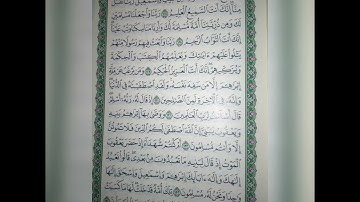 مِنَّآ إِنَّكَ أَنتَ ٱلسَّمِيعُ ٱلْعَلِيمُ رَبَّنَا وَٱجْعَلْنَا مُسْلِمَيْنِ
لَكَ وَمِن ذُرِّيَّتِنَآ أُمَّةً مُّسْلِمَةً لَّكَ وَأَرِنَا مَنَاسِكَنَا وَتُبْ عَلَيْنَآ
إِنَّكَ أَنتَ ٱلتَّوَّابُ ٱلرَّحِيمُ رَبَّنَا وَٱبْعَثْ فِيهِمْ رَسُولًا مِّنْهُمْ
يَتْلُوا۟ عَلَيْهِمْ ءَايَٰتِكَ وَيُعَلِّمُهُمُ ٱلْكِتَٰبَ وَٱلْحِكْمَةَ
وَيُزَكِّيهِمْ إِنَّكَ أَنتَ ٱلْعَزِيزُ ٱلْحَكِيمُ وَمَن يَرْغَبُ عَن مِّلَّةِ
إِبْرَٰهِـۧمَ إِلَّا مَن سَفِهَ نَفْسَهُۥ وَلَقَدِ ٱصْطَفَيْنَٰهُ فِى ٱلدُّنْيَا
وَإِنَّهُۥ فِى ٱلْءَاخِرَةِ لَمِنَ ٱلصَّٰلِحِينَ إِذْ قَالَ لَهُۥ رَبُّهُۥٓ أَسْلِمْ
قَالَ أَسْلَمْتُ لِرَبِّ ٱلْعَٰلَمِينَ وَوَصَّىٰ بِهَآ إِبْرَٰهِـۧمُ بَنِيهِ
وَيَعْقُوبُ يَٰبَنِىَّ إِنَّ ٱللَّهَ ٱصْطَفَىٰ لَكُمُ ٱلدِّينَ فَلَا تَمُوتُنَّ
إِلَّا وَأَنتُم مُّسْلِمُونَ أَمْ كُنتُمْ شُهَدَآءَ إِذْ حَضَرَ يَعْقُوبَ
ٱلْمَوْتُ إِذْ قَالَ لِبَنِيهِ مَا تَعْبُدُونَ مِنۢ بَعْدِى قَالُوا۟ نَعْبُدُ
إِلَٰهَكَ وَإِلَٰهَ ءَابَآئِكَ إِبْرَٰهِـۧمَ وَإِسْمَٰعِيلَ وَإِسْحَٰقَ إِلَٰهًا
وَٰحِدًا وَنَحْنُ لَهُۥ مُسْلِمُونَ تِلْكَ أُمَّةٌ قَدْ خَلَتْ لَهَا مَا كَسَبَتْ